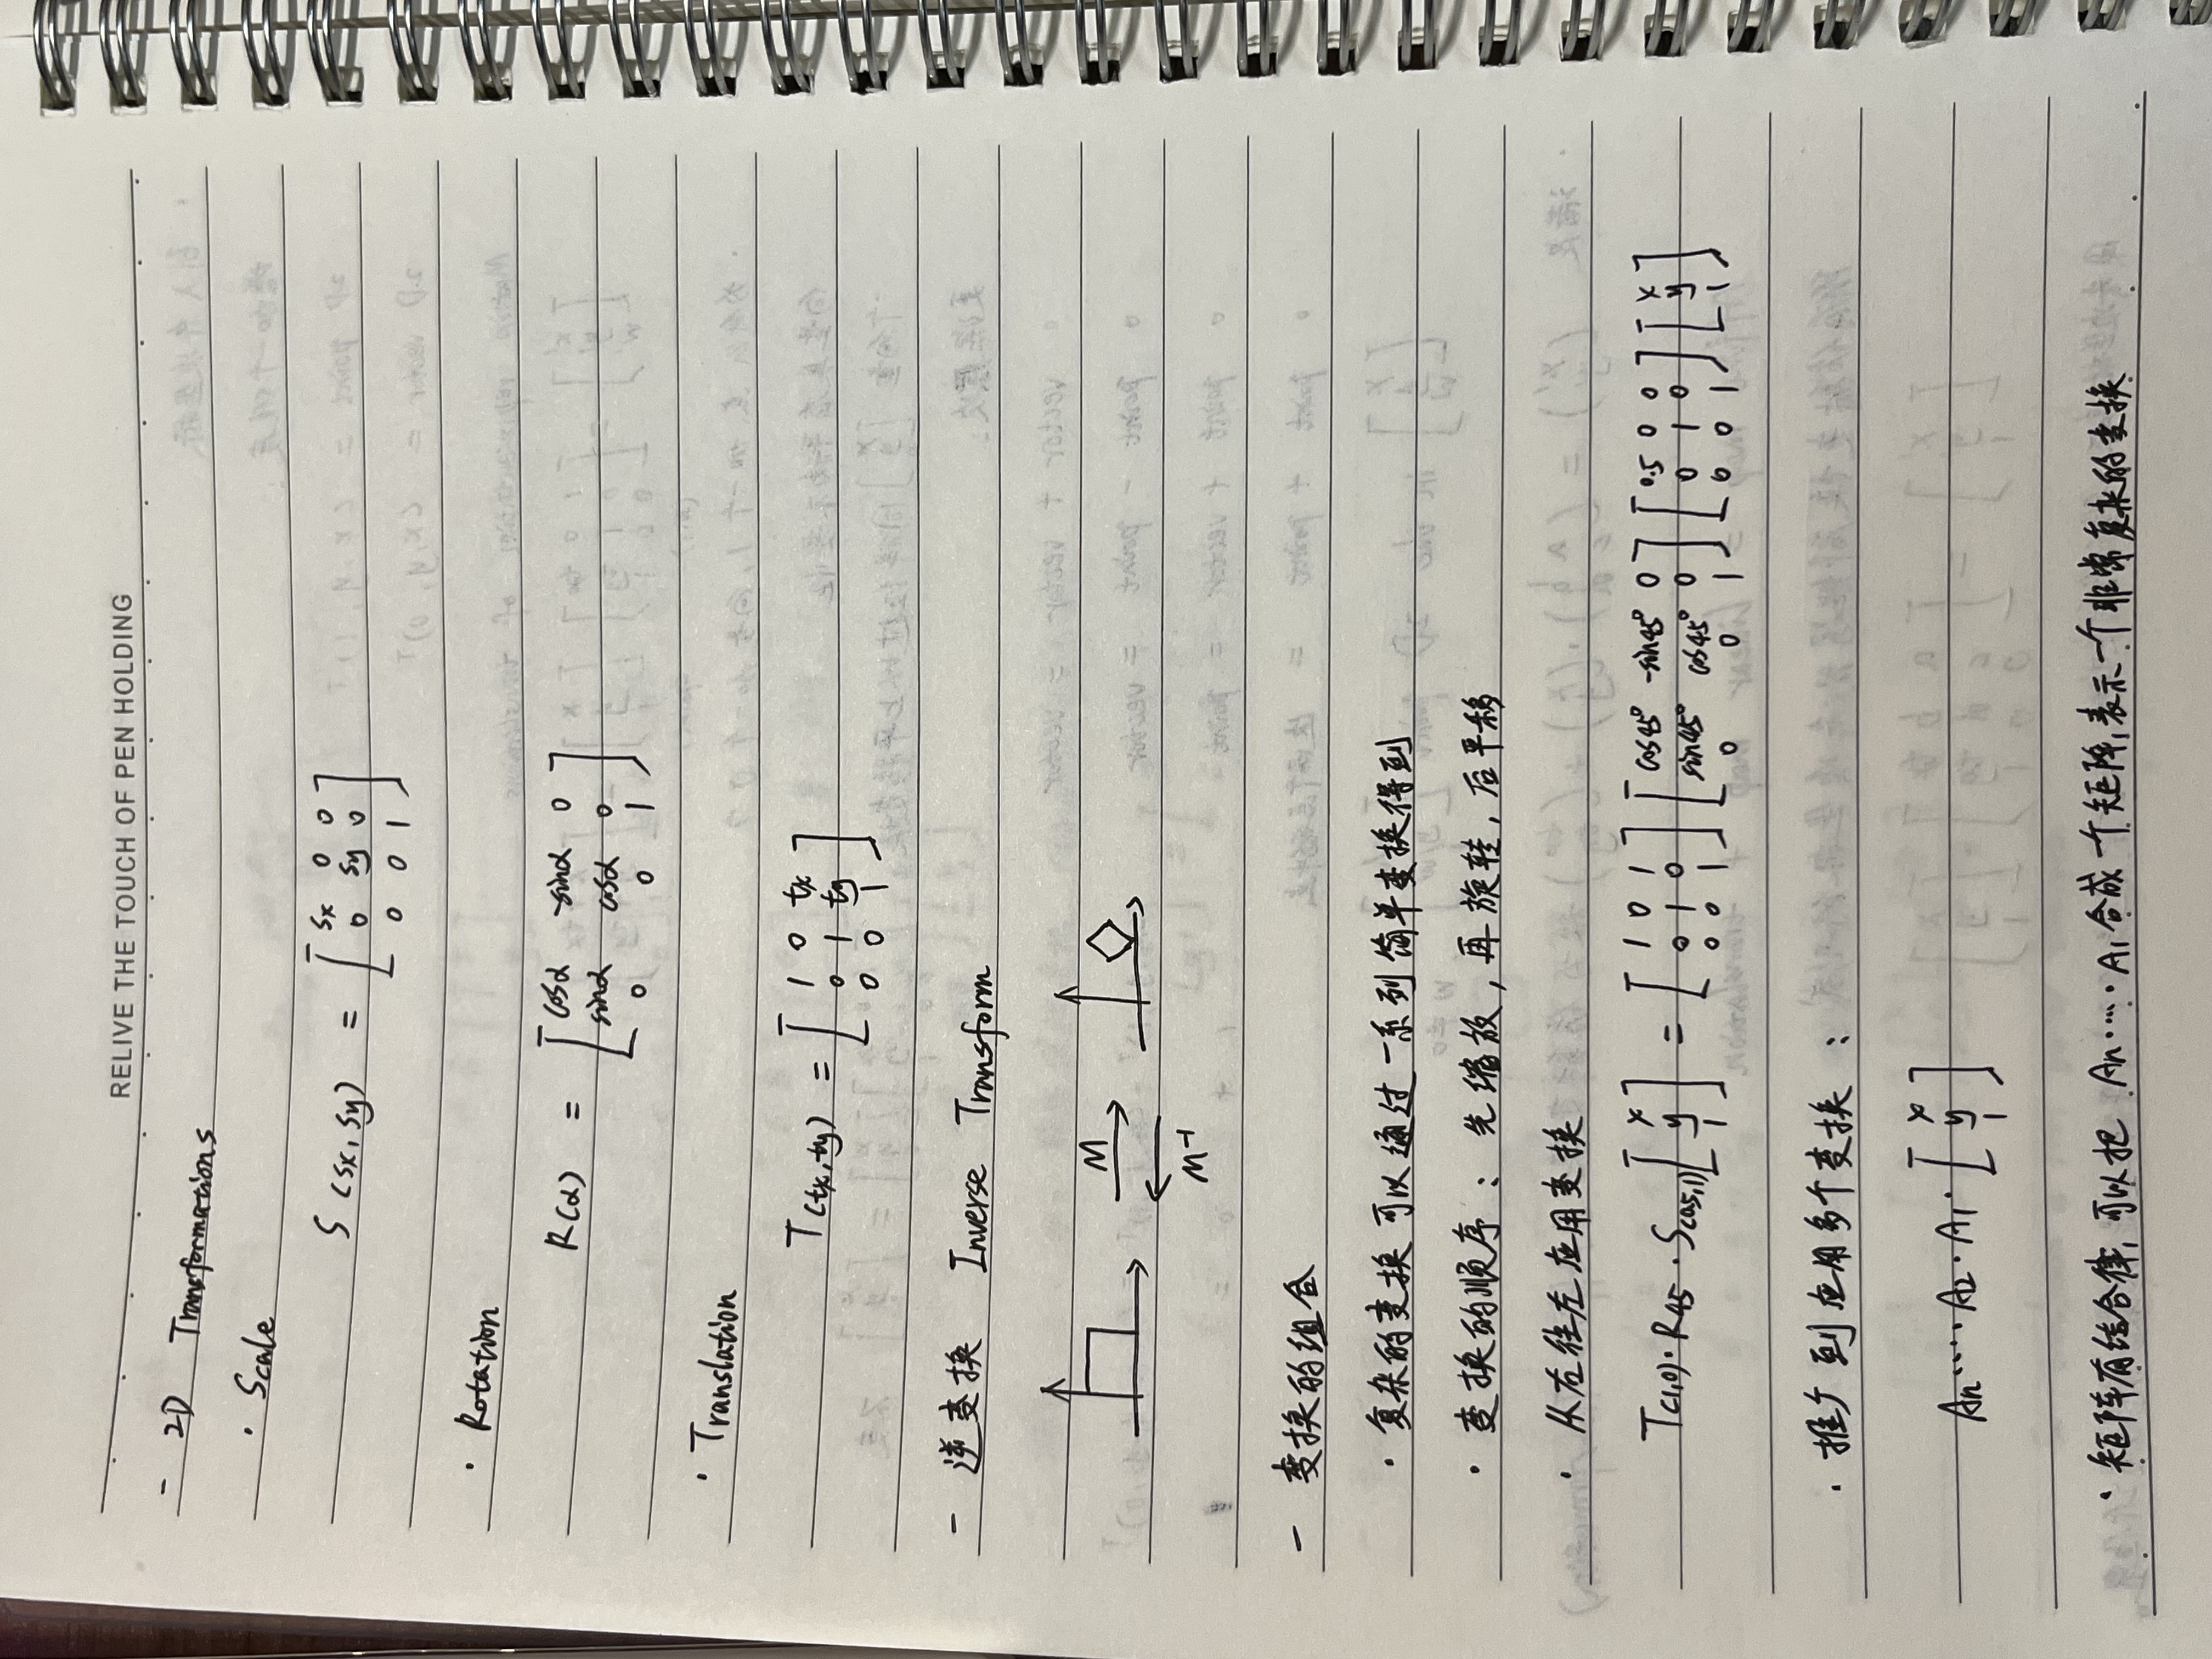 RELIVE THE TOUCH OF PEN HOLDING
- 2D Transformations
· Scale
S(sx, sy) = [ sx 0 0
0 sy 0
0 0 1 ]
· Rotation
R(α) = [ cosα -sinα 0
sinα cosα 0
0 0 1 ]
· Translation
T(tx, ty) = [ 1 0 tx
0 1 ty
0 0 1 ]
- 逆变换 Inverse Transform
M
M⁻¹
- 变换的组合
· 复杂的变换可以通过一系列简单变换得到
· 变换的顺序：先缩放，再旋转，后平移
· 从右往左应用变换
T(1,0)·R45·S(0.5,1) [ x y 1 ] = [ 1 0 1
0 1 0
0 0 1 ] [ cos45° -sin45° 0
sin45° cos45° 0
0 0 1 ] [ 0.5 0 0
0 1 0
0 0 1 ] [ x
y
1 ]
· 推广到应用多个变换：
An·····A2·A1·[ x
y
1 ]
· 矩阵有结合律，可以把 An·····A1 合成一个矩阵，表示一个非常复杂的变换